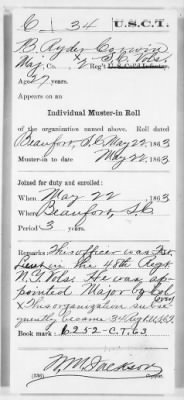 C | 34 | U.S.C.T.
B. Ryder Corwin
Maj., Co. X, 2 Reg't S.C. Vols.
Age 27 years.
Appears on an
Individual Muster-in Roll
of the organization named above. Roll dated
Beaufort, S.C. May 22, 1863
Muster-in to date May 22, 1863
Joined for duty and enrolled:
When May 22 1863
Where Beaufort, S.C.
Period 3 years.
Remarks This officer was 1st
Lieut in the 48th Regt
N.Y. Vols. He was ap-
pointed Major by Col
X This organization subse-
quently became 34 Regt U.S.C.T.
Book mark: 6252-C.T.-63
W. M. Jackson